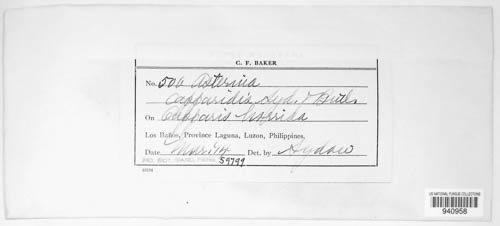 C. F. BAKER
No. 500 Asterina
capparidis Syd. & Butl.
On Capparis horrida
Los Baños, Province Laguna, Luzon, Philippines,
Date Mar. '14 Det. by Sydow
59799
US NATIONAL FUNGUS COLLECTIONS
940958